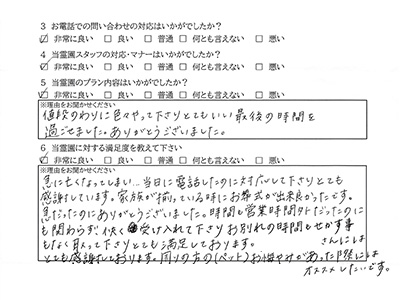 3 お電話での問い合わせの対応はいかがでしたか？
☑ 非常に良い □ 良い □ 普通 □ 何とも言えない □ 悪い
4 当霊園スタッフの対応・マナーはいかがでしたか？
☑ 非常に良い □ 良い □ 普通 □ 何とも言えない □ 悪い
5 当霊園のプラン内容はいかがでしたか？
☑ 非常に良い □ 良い □ 普通 □ 何とも言えない □ 悪い
※理由をお聞かせください
値段のわりに色々やって下さりとてもいい最後の時間を
過ごせました。ありがとうございました。
6 当霊園に対する満足度を教えて下さい
☑ 非常に良い □ 良い □ 普通 □ 何とも言えない □ 悪い
※理由をお聞かせください
急に亡くなってしまい…当日に電話したのに対応して下さりとても
感謝しています。家族が揃っている時にお葬式が出来良かったです。
急だったのにありがとうございました。時間も営業時間外だったのに
も関わらず快く受け入れて下さりお別れの時間もせかす事
もなく取って下さりとても満足しております。
とても感謝しております。周りの方の(ペット)お悔やみがあった際には
さんには
オススメしたいです。